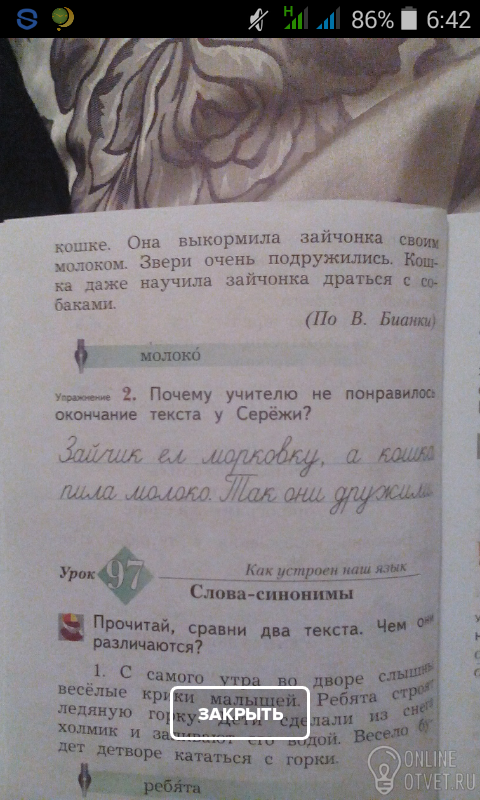 S
H
86%
6:42
кошке. Она выкормила зайчонка своим
молоком. Звери очень подружились. Кош-
ка даже научила зайчонка драться с со-
баками.
(По В. Бианки)
молоко́
Упражнение 2. Почему учителю не понравилось
окончание текста у Серёжи?
Зайчик ел морковку, а кошка
пила молоко. Так они дружили.
Урок 97
Как устроен наш язык
Слова-синонимы
Прочитай, сравни два текста. Чем они
различаются?
1. С самого утра во дворе слышны
весёлые крики малышей. Ребята строят
ледяную горку. Дети сделали из снега
холмик и заливают его водой. Весело бу-
дет детворе кататься с горки.
ЗАКРЫТЬ
ребя́та
ONLINE
OTVET.RU